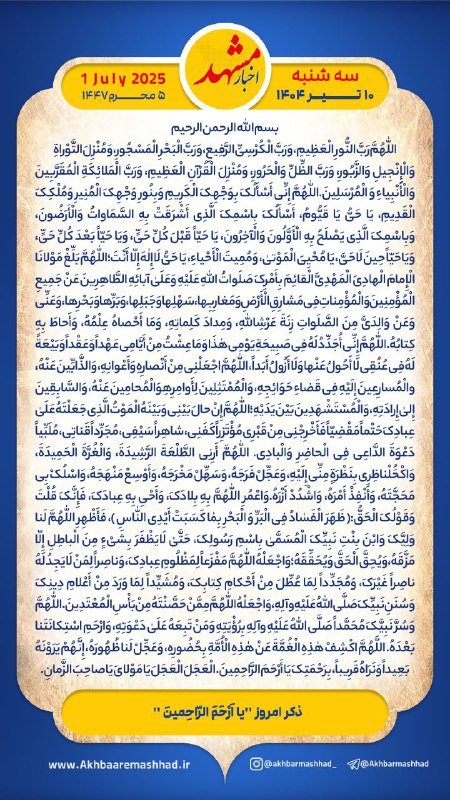 سه شنبه
۱۰ تیر ۱۴۰۴
اخبار مشهد
1 July 2025
۵ محرم ۱۴۴۷
بسم الله الرحمن الرحیم
اللّٰهُمَّ رَبَّ النُّورِ الْعَظِیمِ، وَرَبَّ الْکُرْسِیِّ الرَّفِیعِ، وَرَبَّ الْبَحْرِ الْمَسْجُورِ، وَمُنْزِلَ التَّوْراةِ
وَالْإِنْجِیلِ وَالزَّبُورِ، وَرَبَّ الظِّلِّ وَالْحَرُورِ، وَمُنْزِلَ الْقُرْآنِ الْعَظِیمِ، وَرَبَّ الْمَلائِکَةِ الْمُقَرَّبِینَ
وَالْأَنْبِیاءِ وَالْمُرْسَلِینَ. اللّٰهُمَّ إِنِّی أَسْأَلُکَ بِوَجْهِکَ الْکَرِیمِ وَبِنُورِ وَجْهِکَ الْمُنِیرِ وَمُلْکِکَ
الْقَدِیمِ، یَا حَیُّ یَا قَیُّومُ، أَسْأَلُکَ بِاسْمِکَ الَّذِی أَشْرَقَتْ بِهِ السَّمَاوَاتُ وَالْأَرَضُونَ،
وَبِاسْمِکَ الَّذِی یَصْلَحُ بِهِ الْأَوَّلُونَ وَالْآخِرُونَ، یَا حَیّاً قَبْلَ کُلِّ حَیٍّ، وَیَا حَیّاً بَعْدَ کُلِّ حَیٍّ،
وَیَا حَیّاً حِینَ لَا حَیَّ، یَا مُحْیِیَ الْمَوْتیٰ، وَمُمِیتَ الْأَحْیاءِ، یَا حَیُّ لَاإِلٰهَ إِلّا أَنْتَ؛ اللّٰهُمَّ بَلِّغْ مَوْلانَا
الْإِمامَ الْهادِیَ الْمَهْدِیَّ الْقائِمَ بِأَمْرِکَ صَلَواتُ اللّٰهِ عَلَیْهِ وَعَلَیٰ آبائِهِ الطَّاهِرِینَ عَنْ جَمِیعِ
الْمُؤْمِنِینَ وَالْمُؤْمِناتِ فِی مَشارِقِ الْأَرْضِ وَمَغارِبِها، سَهْلِها وَجَبَلِها، وَبَرِّها وَبَحْرِها، وَعَنِّی
وَعَنْ وَالِدَیَّ مِنَ الصَّلَواتِ زِنَةَ عَرْشِ اللّٰهِ، وَمِدادَ کَلِماتِهِ، وَمَا أَحْصاهُ عِلْمُهُ، وَأَحاطَ بِهِ
کِتابُهُ. اللّٰهُمَّ إِنِّی أُجَدِّدُ لَهُ فِی صَبِیحَةِ یَوْمِی هٰذَا وَمَا عِشْتُ مِنْ أَیَّامِی عَهْداً وَعَقْداً وَبَیْعَةً
لَهُ فِی عُنُقِی لَاأَحُولُ عَنْها وَلَاأَزُولُ أَبَداً، اللّٰهُمَّ اجْعَلْنِی مِنْ أَنْصارِهِ وَأَعْوانِهِ، وَالذَّابِّینَ عَنْهُ،
وَالْمُسارِعِینَ إِلَیْهِ فِی قَضاءِ حَوَائِجِهِ، وَالْمُمْتَثِلِینَ لِأَوامِرِهِ وَالْمُحامِینَ عَنْهُ، وَالسَّابِقِینَ
إِلیٰ إِرادَتِهِ، وَالْمُسْتَشْهَدِینَ بَیْنَ یَدَیْهِ؛ اللّٰهُمَّ إِنْ حالَ بَیْنِی وَبَیْنَهُ الْمَوْتُ الَّذِی جَعَلْتَهُ عَلیٰ
عِبادِکَ حَتْماً مَقْضِیّاً فَأَخْرِجْنِی مِنْ قَبْرِی مُؤْتَزِراً کَفَنِی، شاهِراً سَیْفِی، مُجَرِّداً قَناتِی، مُلَبِّیاً
دَعْوَةَ الدَّاعِی فِی الْحاضِرِ وَالْبادِی. اللّٰهُمَّ أَرِنِی الطَّلْعَةَ الرَّشِیدَةَ، وَالْغُرَّةَ الْحَمِیدَةَ،
وَاکْحُلْ ناظِرِی بِنَظْرَةٍ مِنِّی إِلَیْهِ، وَعَجِّلْ فَرَجَهُ، وَسَهِّلْ مَخْرَجَهُ، وَأَوْسِعْ مَنْهَجَهُ، وَاسْلُکْ بِی
مَحَجَّتَهُ، وَأَنْفِذْ أَمْرَهُ، وَاشْدُدْ أَزْرَهُ. وَاعْمُرِ اللّٰهُمَّ بِهِ بِلادَکَ، وَأَحْیِ بِهِ عِبادَکَ، فَإِنَّکَ قُلْتَ
وَقَوْلُکَ الْحَقُّ: ﴿ظَهَرَ الْفَسادُ فِی الْبَرِّ وَالْبَحْرِ بِمَا کَسَبَتْ أَیْدِی النَّاسِ﴾، فَأَظْهِرِ اللّٰهُمَّ لَنا
وَلِیَّکَ وَابْنَ بِنْتِ نَبِیِّکَ الْمُسَمَّیٰ بِاسْمِ رَسُولِکَ، حَتَّیٰ لَا یَظْفَرَ بِشَیْءٍ مِنَ الْباطِلِ إِلّا
مَزَّقَهُ، وَیُحِقَّ الْحَقَّ وَیُحَقِّقَهُ؛ وَاجْعَلْهُ اللّٰهُمَّ مَفْزَعاً لِمَظْلُومِ عِبادِکَ، وَناصِراً لِمَنْ لَایَجِدُ لَهُ
ناصِراً غَیْرَکَ، وَمُجَدِّداً لِمَا عُطِّلَ مِنْ أَحْکامِ کِتابِکَ، وَمُشَیِّداً لِمَا وَرَدَ مِنْ أَعْلامِ دِینِکَ
وَسُنَنِ نَبِیِّکَ صَلَّی اللّٰهُ عَلَیْهِ وَآلِهِ، وَاجْعَلْهُ اللّٰهُمَّ مِمَّنْ حَصَّنْتَهُ مِنْ بَأْسِ الْمُعْتَدِینَ. اللّٰهُمَّ
وَسُرَّ نَبِیَّکَ مُحَمَّداً صَلَّی اللّٰهُ عَلَیْهِ وَآلِهِ بِرُؤْیَتِهِ وَمَنْ تَبِعَهُ عَلَیٰ دَعْوَتِهِ، وَارْحَمِ اسْتِکانَتَنا
بَعْدَهُ. اللّٰهُمَّ اکْشِفْ هٰذِهِ الْغُمَّةَ عَنْ هٰذِهِ الْأُمَّةِ بِحُضُورِهِ، وَعَجِّلْ لَنا ظُهُورَهُ، إِنَّهُمْ یَرَوْنَهُ
بَعِیداً وَنَرَاهُ قَرِیباً، بِرَحْمَتِکَ یَا أَرْحَمَ الرَّاحِمِینَ. الْعَجَلَ الْعَجَلَ یَا مَوْلایَ یَا صاحِبَ الزَّمانِ.
ذکر امروز "یا اَرْحَمَ الرّاحِمینَ "
www.Akhbaaremashhad.ir
@akhbarmashhad_
@Akhbarmashhad